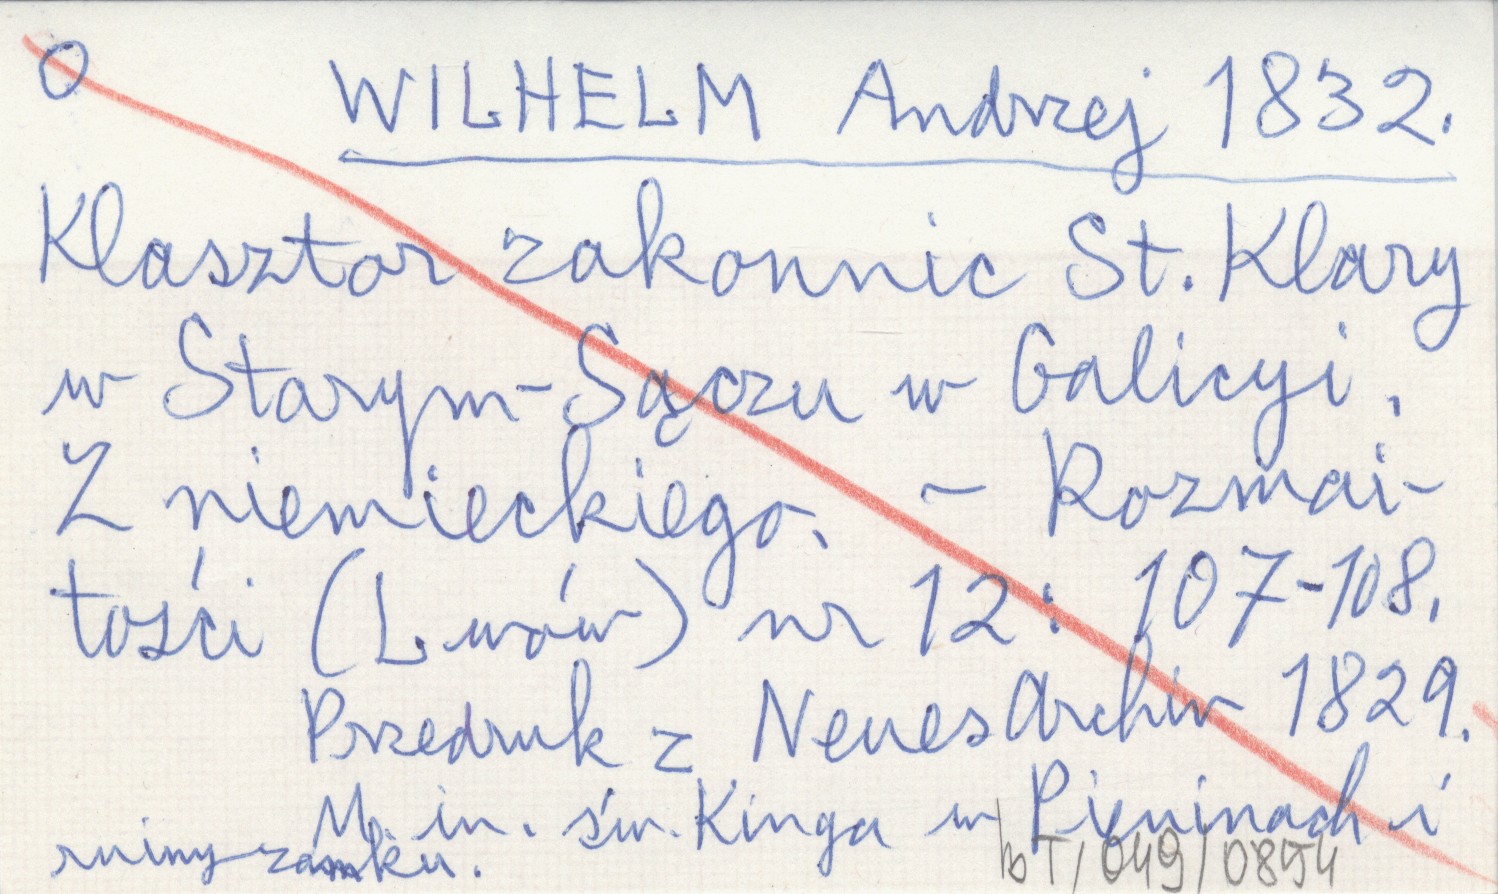 O WILHELM Andrzej 1832.
Klasztor zakonnic St. Klary
w Starym-Sączu w Galicyi.
Z niemieckiego. - Rozmai-
tości (Lwów) nr 12: 107-108.
Przedruk z Neues Archiv 1829.
M. in. św. Kinga w Pieninach i
ruiny zamku.
bT/049/0854